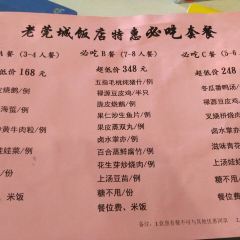 老莞城饭店特惠必吃套餐
A餐（3-4人餐）
低价168元
脆皮烧鹅/例
海蜇/例
炒黄牛肉粒/例
娃娃菜/例
/例
、米饭
必吃B餐（7-8人餐）
超低价248元
五指毛桃炖猪什/例
禄源豆皮鸡/半只
脆皮烧鹅/例
果仁炒生鱼片/例
果皮蒸双丸/例
卤水掌亦/例
百合蒸鲜腐竹/例
花生芽炒烧肉/例
上汤豆苗/例
糖不甩/份
餐位费、米饭
必吃C餐（
超低价348
冬瓜薏鸭汤/
禄源豆皮鸡/
叉烧拼烧肉
卤水掌亦/
滋味青花
上汤娃娃
糖不甩
餐位费
备注：1.以上套餐不可与其他优惠同享